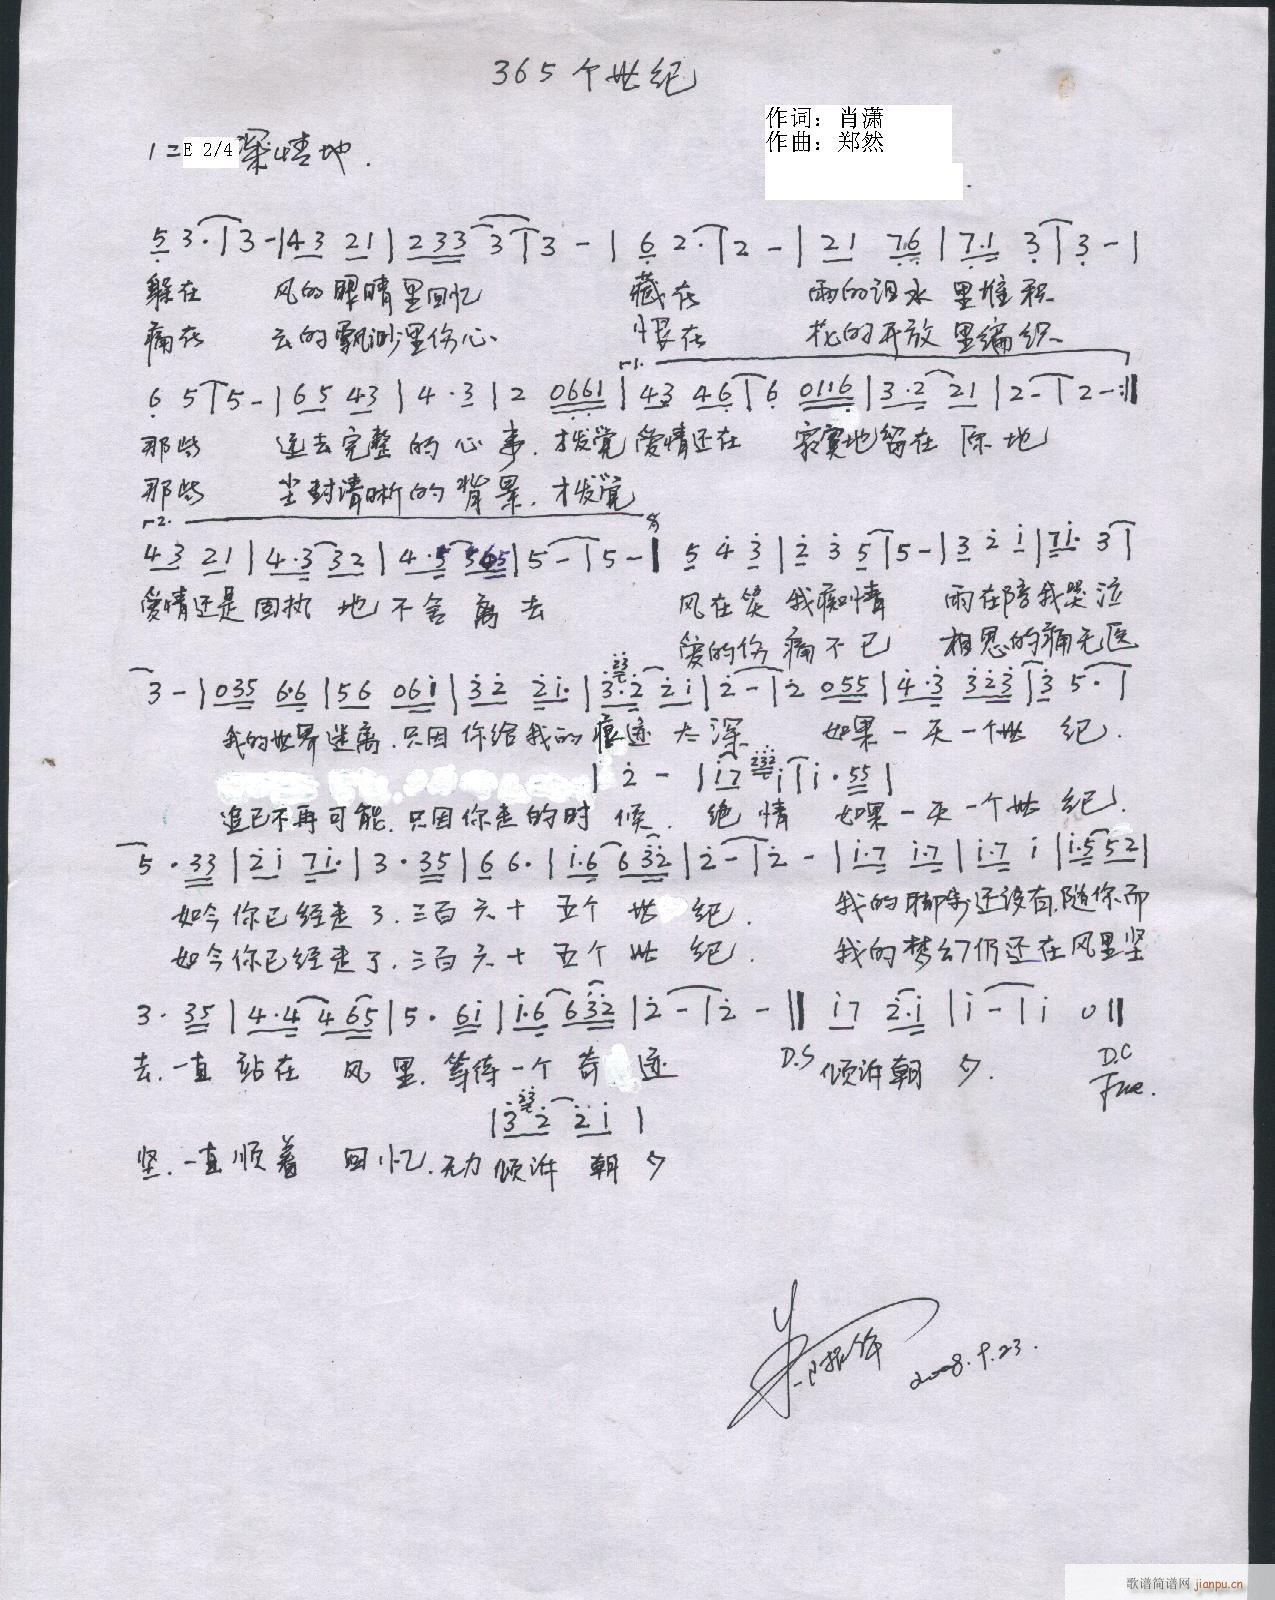 365个世纪
作词：肖潇
作曲：郑然
1=E 2/4 深情地.
5 3·|3 -|43 21|233 3|3 - |6 2·|2 - |21 76|7·1 3|3 -|
躲在 风的眼睛里回忆 藏在 雨的泪水里堆积
痛在 云的飘渺里伤心、 恨在 花的开放里编织
1.
6 5|5 - |65 43|4·3|2 0661|43 46|6 0116|3·2 21|2 -|2 -:‖
那些 逝去完整的心事.才发觉爱情还在 寂寞地留在原地
那些 尘封清晰的背景.才发觉
2.
43 21|4·3 32|4·5 565|5 -|5 -‖ 5 4̇ 3̇|2̇ 3̇ 5|5 - |3̇ 2̇ 1̇|71̇· 3|
爱情还是固执地不舍离去 风在笑我痴情 雨在陪我哭泣
爱的伤痛不已 相思的痛无医
3 -|035 6·6|56 061̇|3̇2̇ 2̇1̇·|3̇·2̇ 2̇1̇|2̇ -|2̇ 055|4·3 323|3 5·|
我的世界迷离.只因你给我的痕迹太深 如果一天一个世纪.
|2̇ - |1̇7 1̇|1̇·55|
追已不再可能.只因你走的时候.绝情 如果一天一个世纪.
5·33|2̇1̇ 71̇·|3·35|6 6·|1̇·6 63̇2̇|2̇ -|2̇ - |1̇·7 1̇·7|1̇·7 1̇|1̇·5 52|
如今你已经走了.三百六十五个世纪. 我的脚步还没有随你而
如今你已经走了.三百六十五个世纪. 我的梦幻仍还在风里坚
3·35|4·4 465|5·61̇|1̇·6 63̇2̇|2̇ -|2̇ -‖1̇7 2̇·1̇|1̇ -|1̇ 0‖
去.一直站在风里.等待一个奇迹 D.S 倾诉朝夕. D.C
Fine.
|3̇ 2̇ 2̇1̇ |
坚.一直顺着回忆.无力倾诉朝夕
2008.9.23.
歌谱简谱网 jianpu.cn